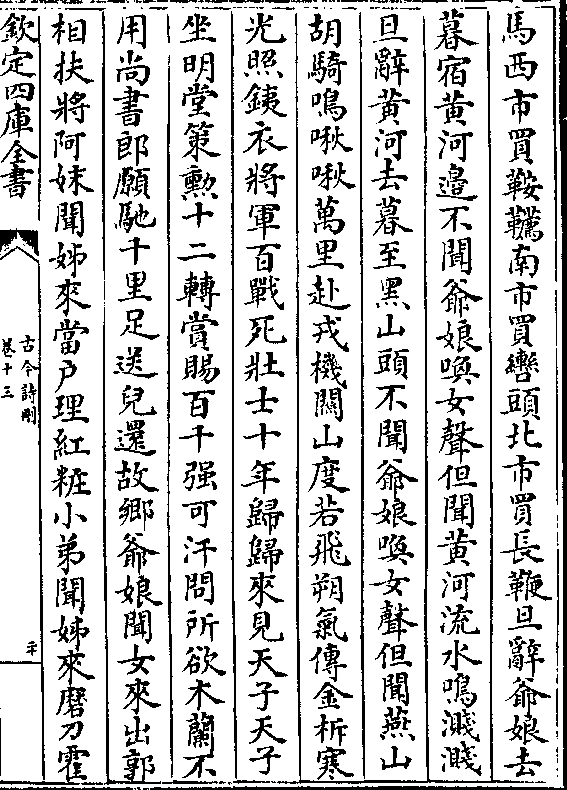 馬西市買鞍韉南市買轡頭北市買長鞭旦辭爺娘去
暮宿黄河邉不聞爺娘喚女聲但聞黄河流水鳴濺濺
旦辭黄河去暮至黑山頭不聞爺娘喚女聲但聞燕山
胡騎鳴啾啾萬里赴戎機關山度若飛朔氣傳金柝寒
光照鐵衣將軍百戰死壯士十年歸歸來見天子天子
坐明堂策勲十二轉賞賜百千强可汗問所欲木蘭不
用尚書郎願馳千里足送兒還故鄉爺娘聞女來出郭
相扶將阿妹聞姊來當户理紅粧小弟聞姊來磨刀霍
欽定四庫全書
古今詩刪
卷十三